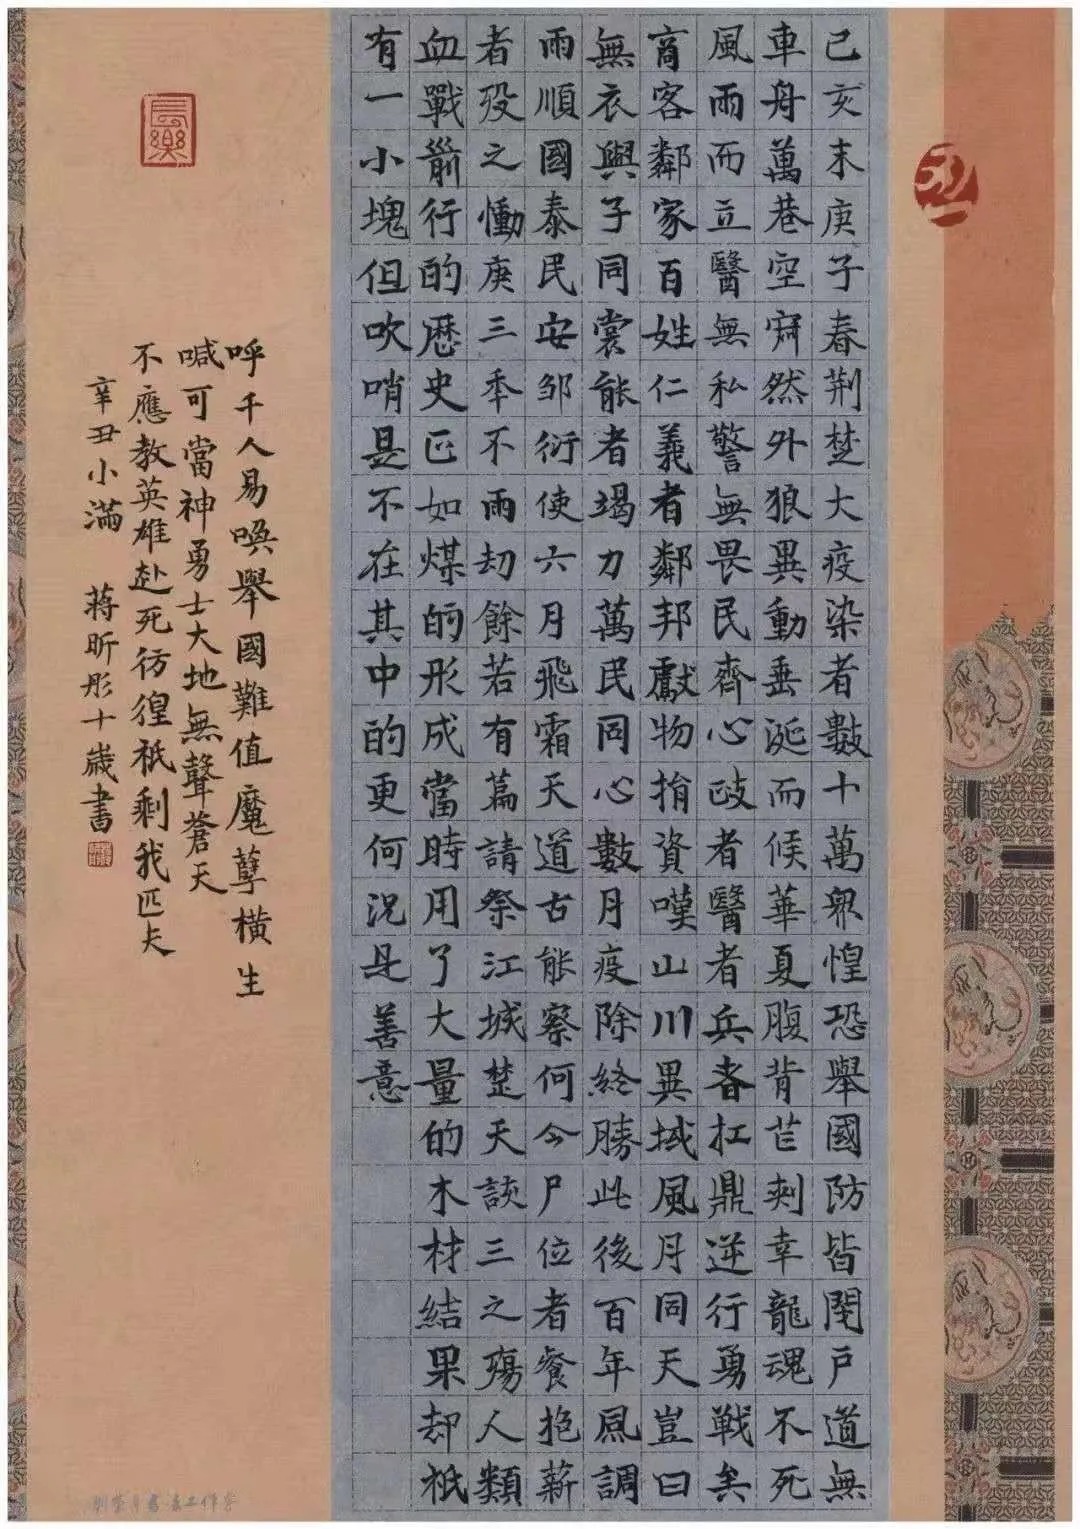 己亥末庚子春荆楚大疫染者數十萬眾惶恐舉國防皆閉戶道無
車舟萬巷空寂然外狼異動垂涎而候華夏腹背芒刺幸龍魂不死
風雨而立醫無私警無畏民齊心政者醫者兵者扛鼎逆行勇戰矣
商客鄰家百姓仁義者鄰邦獻物捐資嘆山川異域風月同天豈曰
無衣與子同裳能者竭力萬民同心數月疫除終勝此後百年風調
雨順國泰民安邹衍使六月飛霜天道古能察何今尸位者餐抱薪
者殁之慟庚三年不雨劫餘若有篇請祭江城楚天談三之殤人類
血戰前行的歷史正如煤的形成當時用了大量的木材結果却祇
有一小塊但吹哨是不在其中的更何況是善意
呼千人易喚舉國難值魔孽橫生
喊可當神勇士大地無聲蒼天
不應教英雄赴死彷徨祇剩我匹夫
辛丑小滿 蔣昕彤十歲書
長樂